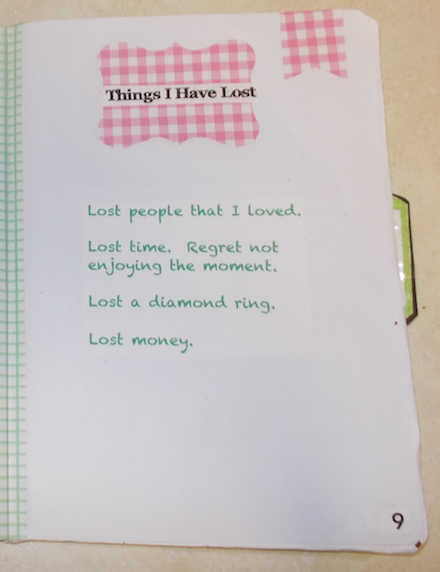 Things I Have Lost
Lost people that I loved.
Lost time. Regret not
enjoying the moment.
Lost a diamond ring.
Lost money.
9